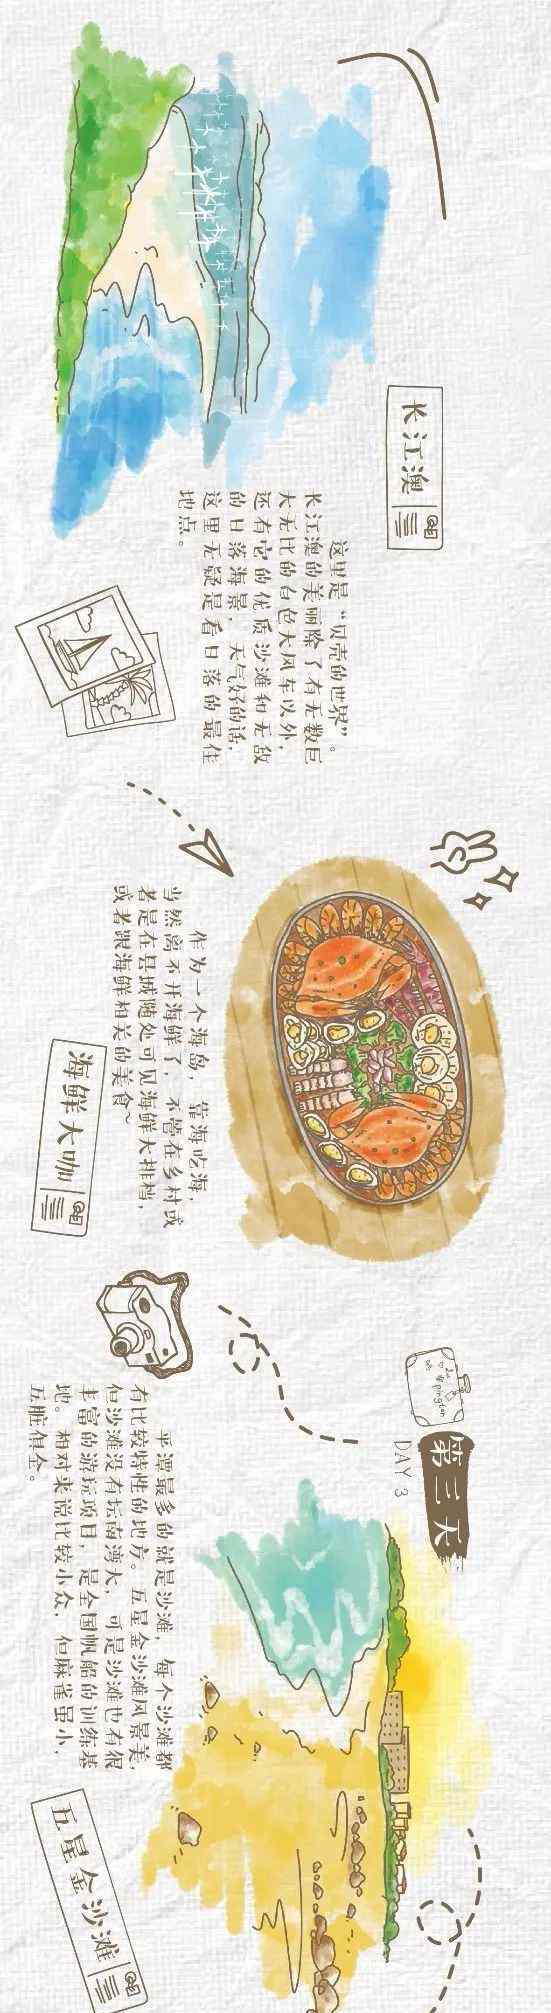 长江澳
这里是“贝壳的世界”。
长江澳的美丽除了有无数巨
大无比的白色大风车以外，
还有它的优质沙滩和无敌
的日落海景，天气好的话，
这里无疑是看日落的最佳
地点。
作为一个海岛，靠海吃海，
当然离不开海鲜了，不管在乡村或
者是在县城随处可见海鲜大排档，
或者跟海鲜相关的美食~
海鲜大咖
pingtan
第三天
DAY 3
平潭最多的就是沙滩，每个沙滩都
有比较特性的地方。五星金沙滩风景美，
但沙滩没有坛南湾大，可是沙滩也有很
丰富的游玩项目，是全国帆船的训练基
地。相对来说比较小众，但麻雀虽小，
五脏俱全。
五星金沙滩